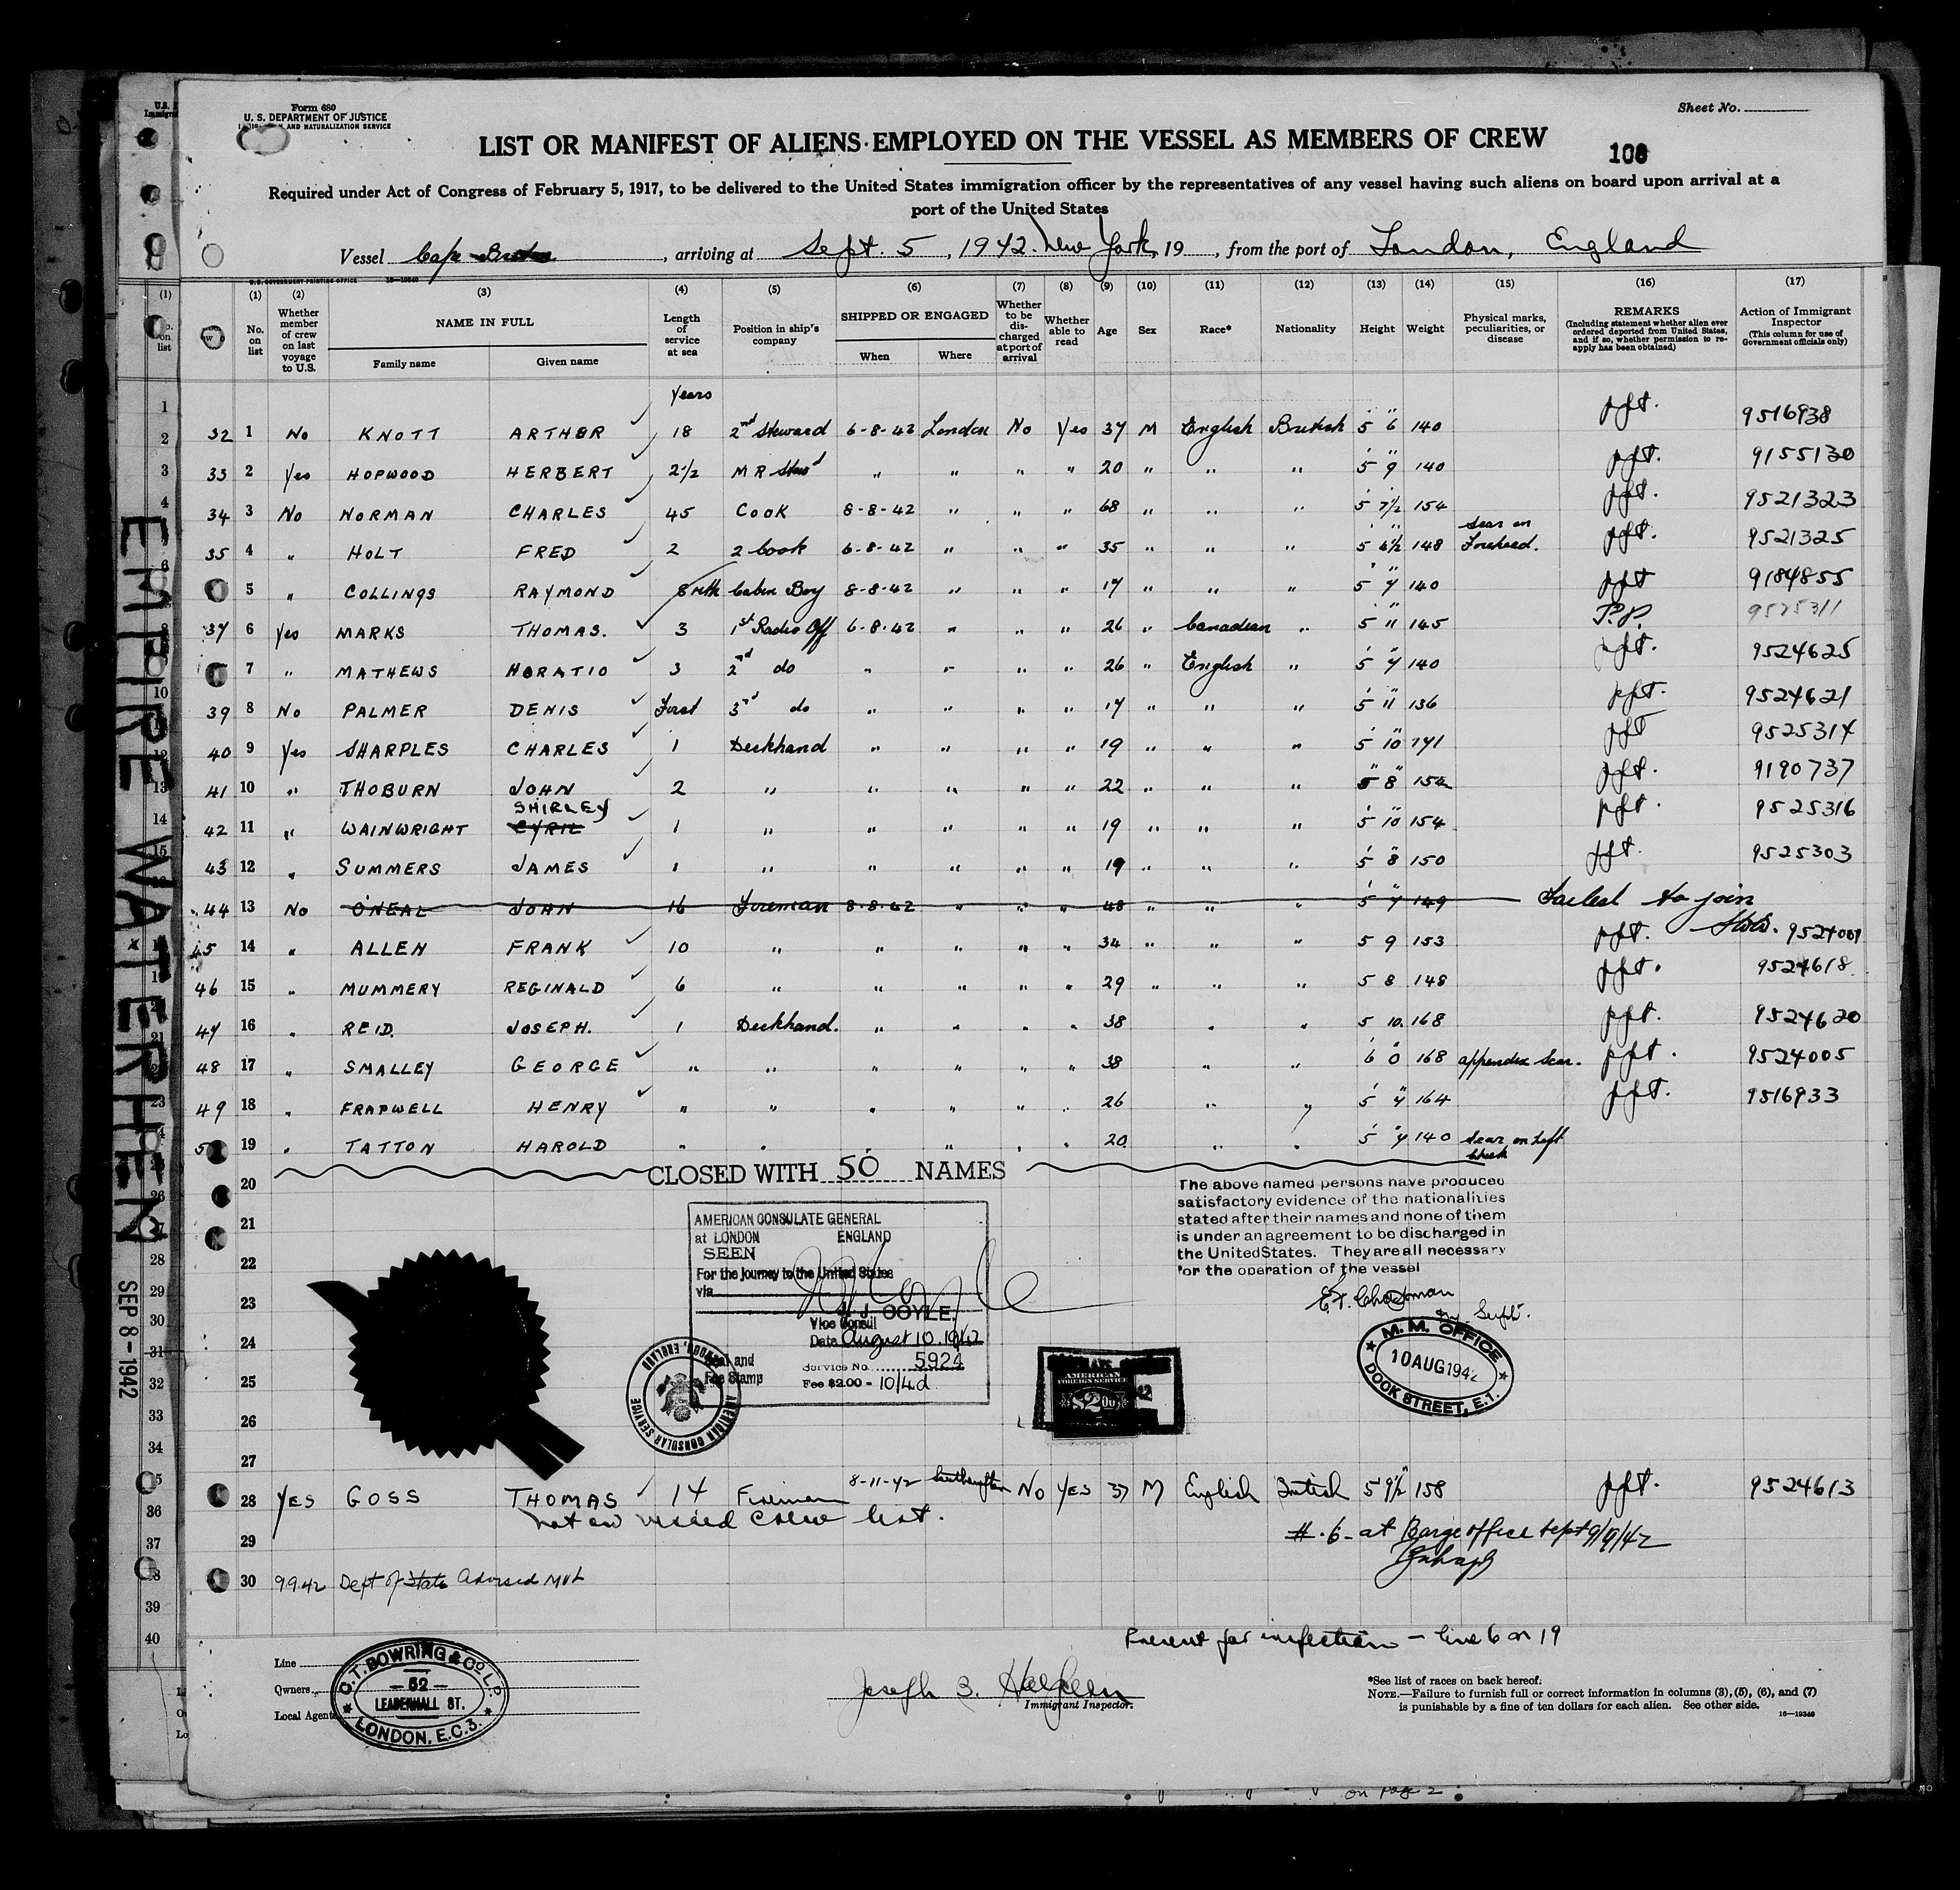 Form 680
U. S. DEPARTMENT OF JUSTICE
AND NATURALIZATION SERVICE
Sheet No.
LIST OR MANIFEST OF ALIENS EMPLOYED ON THE VESSEL AS MEMBERS OF CREW
108
Required under Act of Congress of February 5, 1917, to be delivered to the United States immigration officer by the representatives of any vessel having such aliens on board upon arrival at a
port of the United States
Vessel Cape , arriving at Sept. 5, 1942. New York, 19 , from the port of London, England
(1) (2) (3) (4) (5) (6) (7) (8) (9) (10) (11) (12) (13) (14) (15) (16) (17)
No. on list
Whether member of crew on last voyage to U.S.
NAME IN FULL
Family name Given name
Length of service at sea
Position in ship's company
SHIPPED OR ENGAGED
When Where
Whether to be discharged at port of arrival
Whether able to read
Age Sex Race* Nationality Height Weight
Physical marks, peculiarities, or disease
REMARKS
(Including statement whether alien ever ordered deported from United States, and if so, whether permission to re-apply has been obtained)
Action of Immigrant Inspector
(This column for use of Government officials only)
Years
32 1 No KNOTT ARTHER 18 2nd Steward 6-8-42 London No Yes 37 M English British 5' 6" 140 ppt. 9516938
33 2 Yes HOPWOOD HERBERT 2½ M R Stewd " " " " 20 " " " 5' 9" 140 ppt. 9155130
34 3 No NORMAN CHARLES 45 COOK 8-8-42 " " " 68 " " " 5' 7½ 154 ppt. 9521323
35 4 " HOLT FRED 2 2 Cook 6-8-42 " " " 35 " " " 5' 6½" 148 Scar on Forehead. ppt. 9521325
5 " COLLINGS RAYMOND 8 mth Cabin Boy 8-8-42 " " " 17 " " " 5' 7" 140 ppt 9184855
37 6 Yes MARKS THOMAS. 3 1st Radio Off 6-8-42 " " " 26 " Canadian " 5' 11" 145 P.P. 9525311
7 " MATHEWS HORATIO 3 2nd do " " " " 26 " English " 5' 7" 140 ppt. 9524625
39 8 No PALMER DENIS First 3rd do " " " " 17 " " " 5' 11" 136 ppt. 9524621
40 9 Yes SHARPLES CHARLES 1 Deckhand " " " " 19 " " " 5' 10" 141 ppt 9525314
41 10 " THOBURN JOHN 2 " " " " " 22 " " " 5' 8" 154 ppt. 9190737
42 11 " WAINWRIGHT CYRIL SHIRLEY 1 " " " " " 19 " " " 5' 10" 154 ppt. 9525316
43 12 " SUMMERS JAMES 1 " " " " " 19 " " " 5' 8" 150 ppt. 9525303
44 13 No O'NEAL JOHN 16 Fireman 8-8-42 " " " 48 " " " 5' 7" 149 Failed to join
45 14 " ALLEN FRANK 10 " " " " " 34 " " " 5 9 153 ppt. 9524001
46 15 " MUMMERY REGINALD 6 " " " " " 29 " " " 5 8 148 ppt. 9524618
47 16 " REID. JOSEPH. 1 Deckhand. " " " " 38 " " 5 10 168 ppt. 9524620
48 17 " SMALLEY GEORGE " " " " " " 38 " " 6' 0" 168 appendix Scar. ppt. 9524005
49 18 " FRAPWELL HENRY " " " " " " 26 " " 5' 7" 164 ppt. 9516933
19 " TATTON HAROLD " " " " " " 20 " " 5' 7" 140 Scar on Left Cheek
CLOSED WITH 50 NAMES
20
21
22
23
24
25
26
27
AMERICAN CONSULATE GENERAL
at LONDON ENGLAND
SEEN
For the journey to the United States
via
J. DOYLE.
Vice Consul
Date August 10, 1942
Seal and Fee Stamp
Service No. 5924
Fee $2.00 - 10/4d
AMERICAN CONSULAR SERVICE LONDON, ENGLAND
AMERICAN
FOREIGN SERVICE
$2.00
The above named persons have produced
satisfactory evidence of the nationalities
stated after their names and none of them
is under an agreement to be discharged in
the United States. They are all necessary
for the operation of the vessel
M. M. OFFICE
10 AUG 1942
DOCK STREET, E.1.
28 YES GOSS THOMAS 14 Fireman 8-11-42 Southampton No YES 37 M English British 5 9½" 158 ppt. 9524613
not on visaed crew list.
29 #.6- at Barge office Sept 9/9/42
30 9942 Dept of State Advised
Present for inspection - line 6 or 19
Line
Owners
Local Agents
C. T. BOWRING & CO. LD.
52
LEADENHALL ST.
LONDON, E.C.3.
Joseph B.
Immigrant Inspector.
*See list of races on back hereof.
NOTE.—Failure to furnish full or correct information in columns (3), (5), (6), and (7)
is punishable by a fine of ten dollars for each alien. See other side.
16—19340
EMPIRE WATERHEN
SEP 8-1942
on page 2